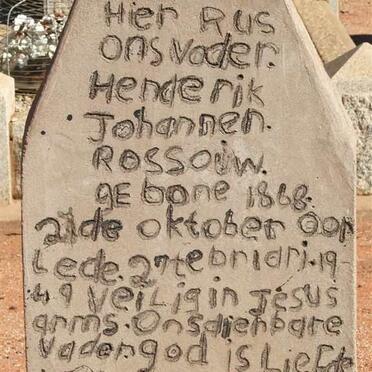 Hier Rus
ons vader.
Henderik
Johannen.
Rossouw.
gE bone 1868.
21de oktober oor
Lede. 27tebriari. 19-
49 veilig in Jesus
arms. Onsdienbare
vader god is Liefde